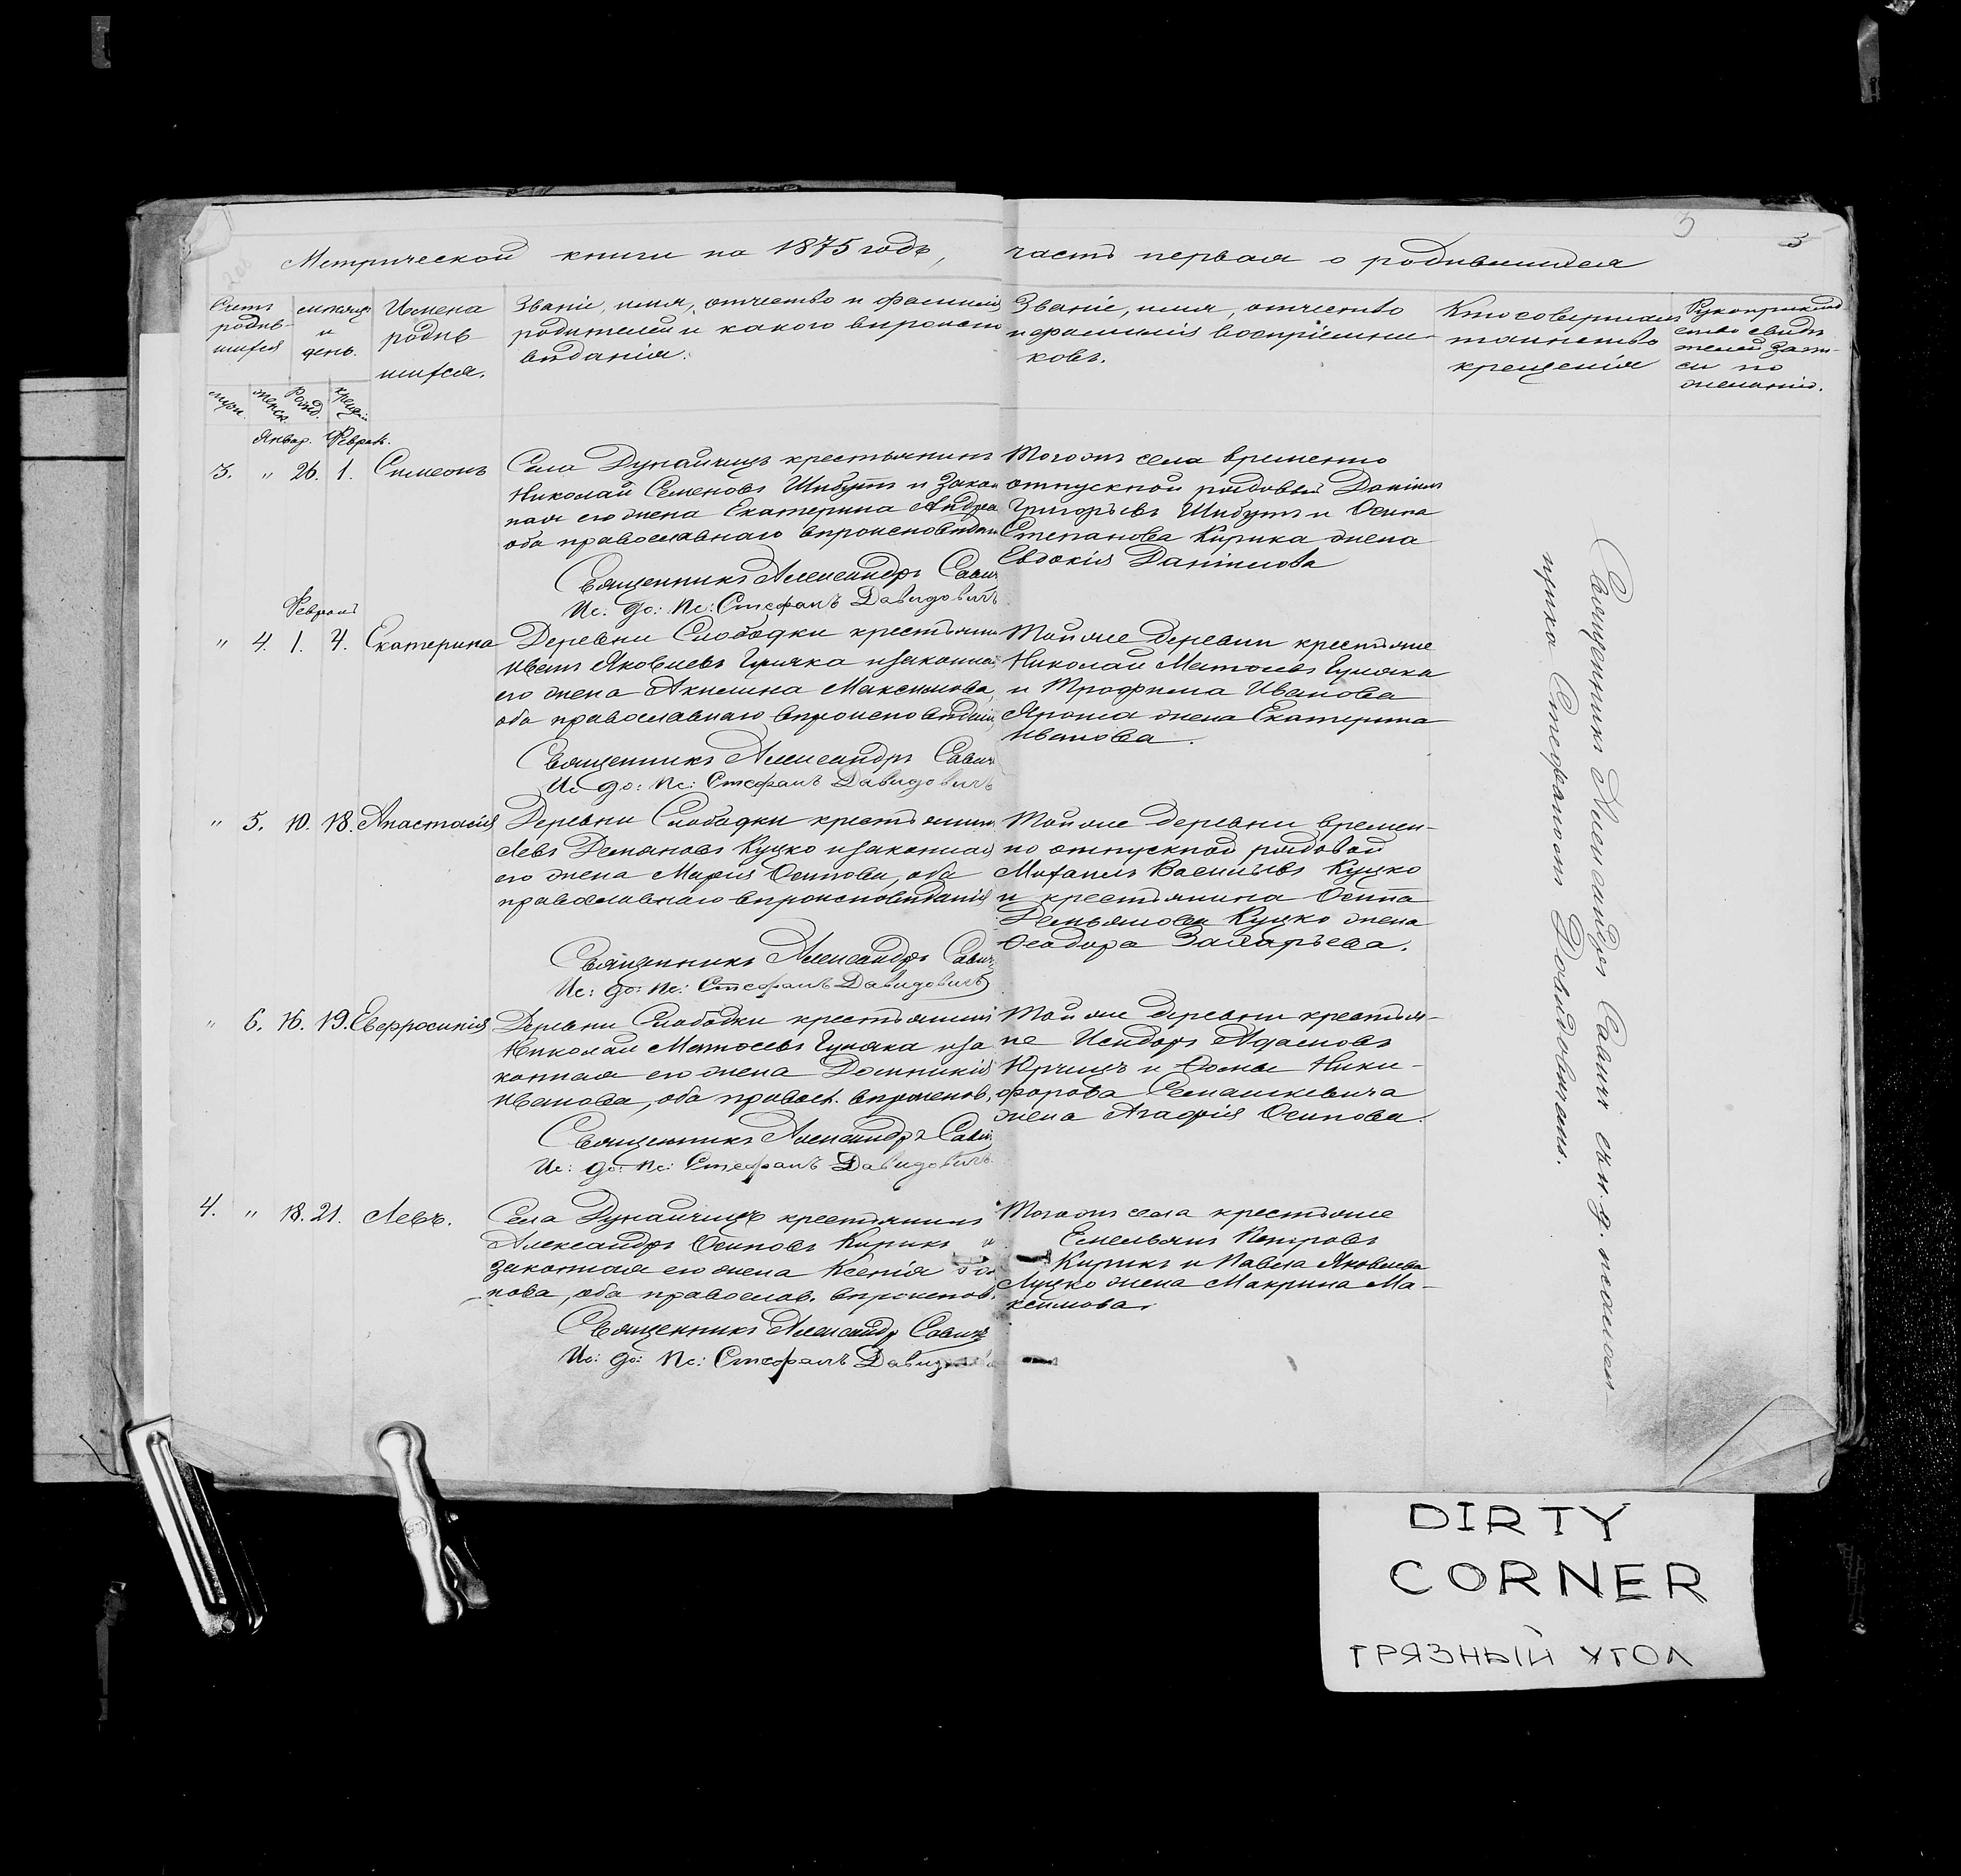 3
3
Метрической книги на 1875 годъ, часть первая о родившихся
Счетъ родившихся
мѣсяцъ и день.
Имена родившихся.
Званіе, имя, отчество и фамилія
родителей и какого вѣроиспо
вѣданія.
Званіе, имя, отчество
и фамилія воспріемни-
ковъ.
Кто совершалъ
таинство
крещенія
Рукоприклад
ство свидѣ
телей запи-
си по
желанію.
муж. женск. Рожд. крещ.
Январ. Феврал.
3. " 26. 1. Симеонъ
Села Дунайчицъ крестьянинъ
Николай Семеновъ Шибутъ и закон
ная его жена Екатерина Андреа
оба православнаго вѣроисповѣдан
Священникъ Александръ Савич
Ис: до: Пс: Стефанъ Давидовичъ
Того жъ села временно
отпускной рядовый Даніилъ
Григорьевъ Шибутъ и Осипа
Степанова Кирика жена
Евдокія Даніилова
Февраль
" 4. 1. 4. Екатерина
Деревни Слободки крестьянин
Иванъ Яковлевъ Гуляка и законная
его жена Акилина Максимова,
оба православнаго вѣроисповѣданія
Священникъ Александръ Савич
Ис: до: Пс: Стефанъ Давидовичъ
Той же деревни крестьяне
Николай Матѳеевъ Гуляка
и Трофима Иванова
Яроша жена Екатерина
Иванова.
" 5. 10. 18. Анастасія
Деревни Слободки крестьянинъ
Левъ Демьяновъ Куцко и законная
его жена Марія Осипова, оба
православнаго вѣроисповѣданія
Священникъ Александръ Савич
Ис: до: Пс: Стефанъ Давидовичъ
Той же деревни времен-
но отпускной рядовой
Михаилъ Васильевъ Куцко
и крестьянина Осипа
Демьянова Куцко жена
Ѳеодора Захарьева.
" 6. 16. 19. Евфросинія
Деревни Слободки крестьянинъ
Николай Матѳеевъ Гуляка и за
конная его жена Домникія
Иванова, оба правосл. вѣроиспов.
Священникъ Александръ Савич
Ис: до: Пс: Стефанъ Давидовичъ
Той же деревни крестья-
не Исидоръ Адамовъ
Юрчицъ и Ѳомы Ники-
форова Семашкевича
жена Агафія Осипова.
4. " 18. 21. Левъ.
Села Дунайчицъ крестьянинъ
Александръ Осиповъ Кирикъ и
законная его жена Ксенія
нова, оба православ. вѣроиспов.
Священникъ Александръ Савич
Ис: до: Пс: Стефанъ Давид
Того жъ села крестьяне
Емельянъ Петровъ
Кирикъ и Павла Яковлева
Луцко жена Макрина Ма-
ксимова.
Священникъ Александръ Савичъ съ и. д. псалом-
щика Стефаномъ Давидовичемъ.
DIRTY
CORNER
ГРЯЗНЫЙ УГОЛ